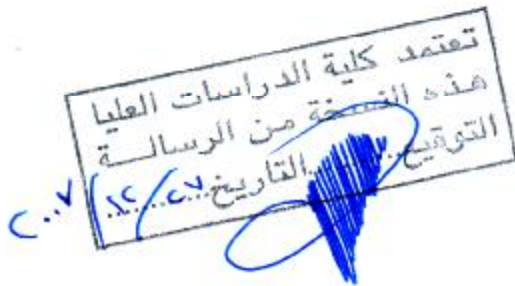 تعتمد كلية الدراسات العليا
هذه النسخة من الرسالــة
التوقيع.......التاريخ...٢٧/١٢/٢٠٠٧